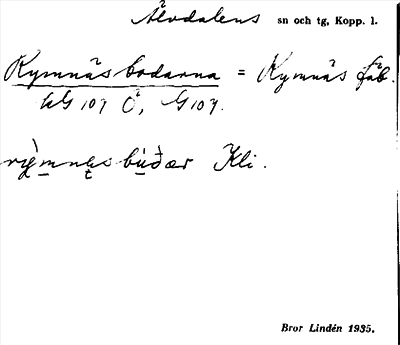 Älvdalens sn och tg, Kopp. l.
Rymnäsbodarna = Rymnäs fäb.
GG 107 Ö, G 107.
Kli.
Bror Lindén 1935.